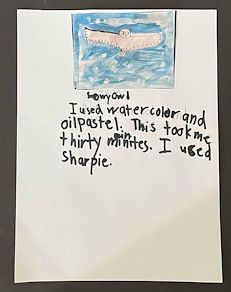 Snowy Owl
I used watercolor and
oilpastel. This took me
thirty minites. I used
Sharpie.